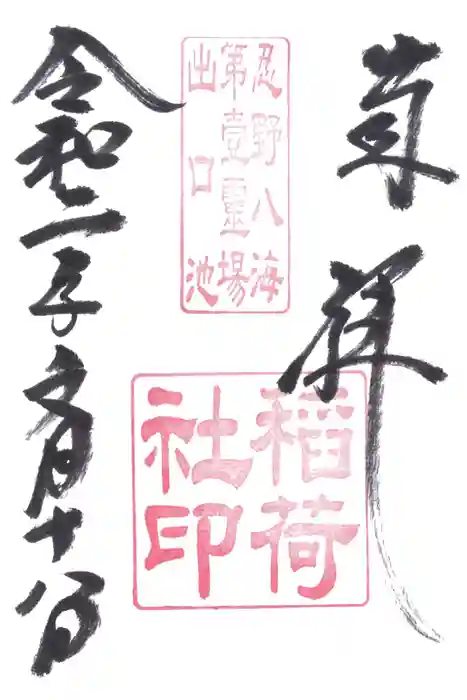 奉拝
忍野八海
第壹霊場
出口池
稲荷
社印
令和二子文月十八日